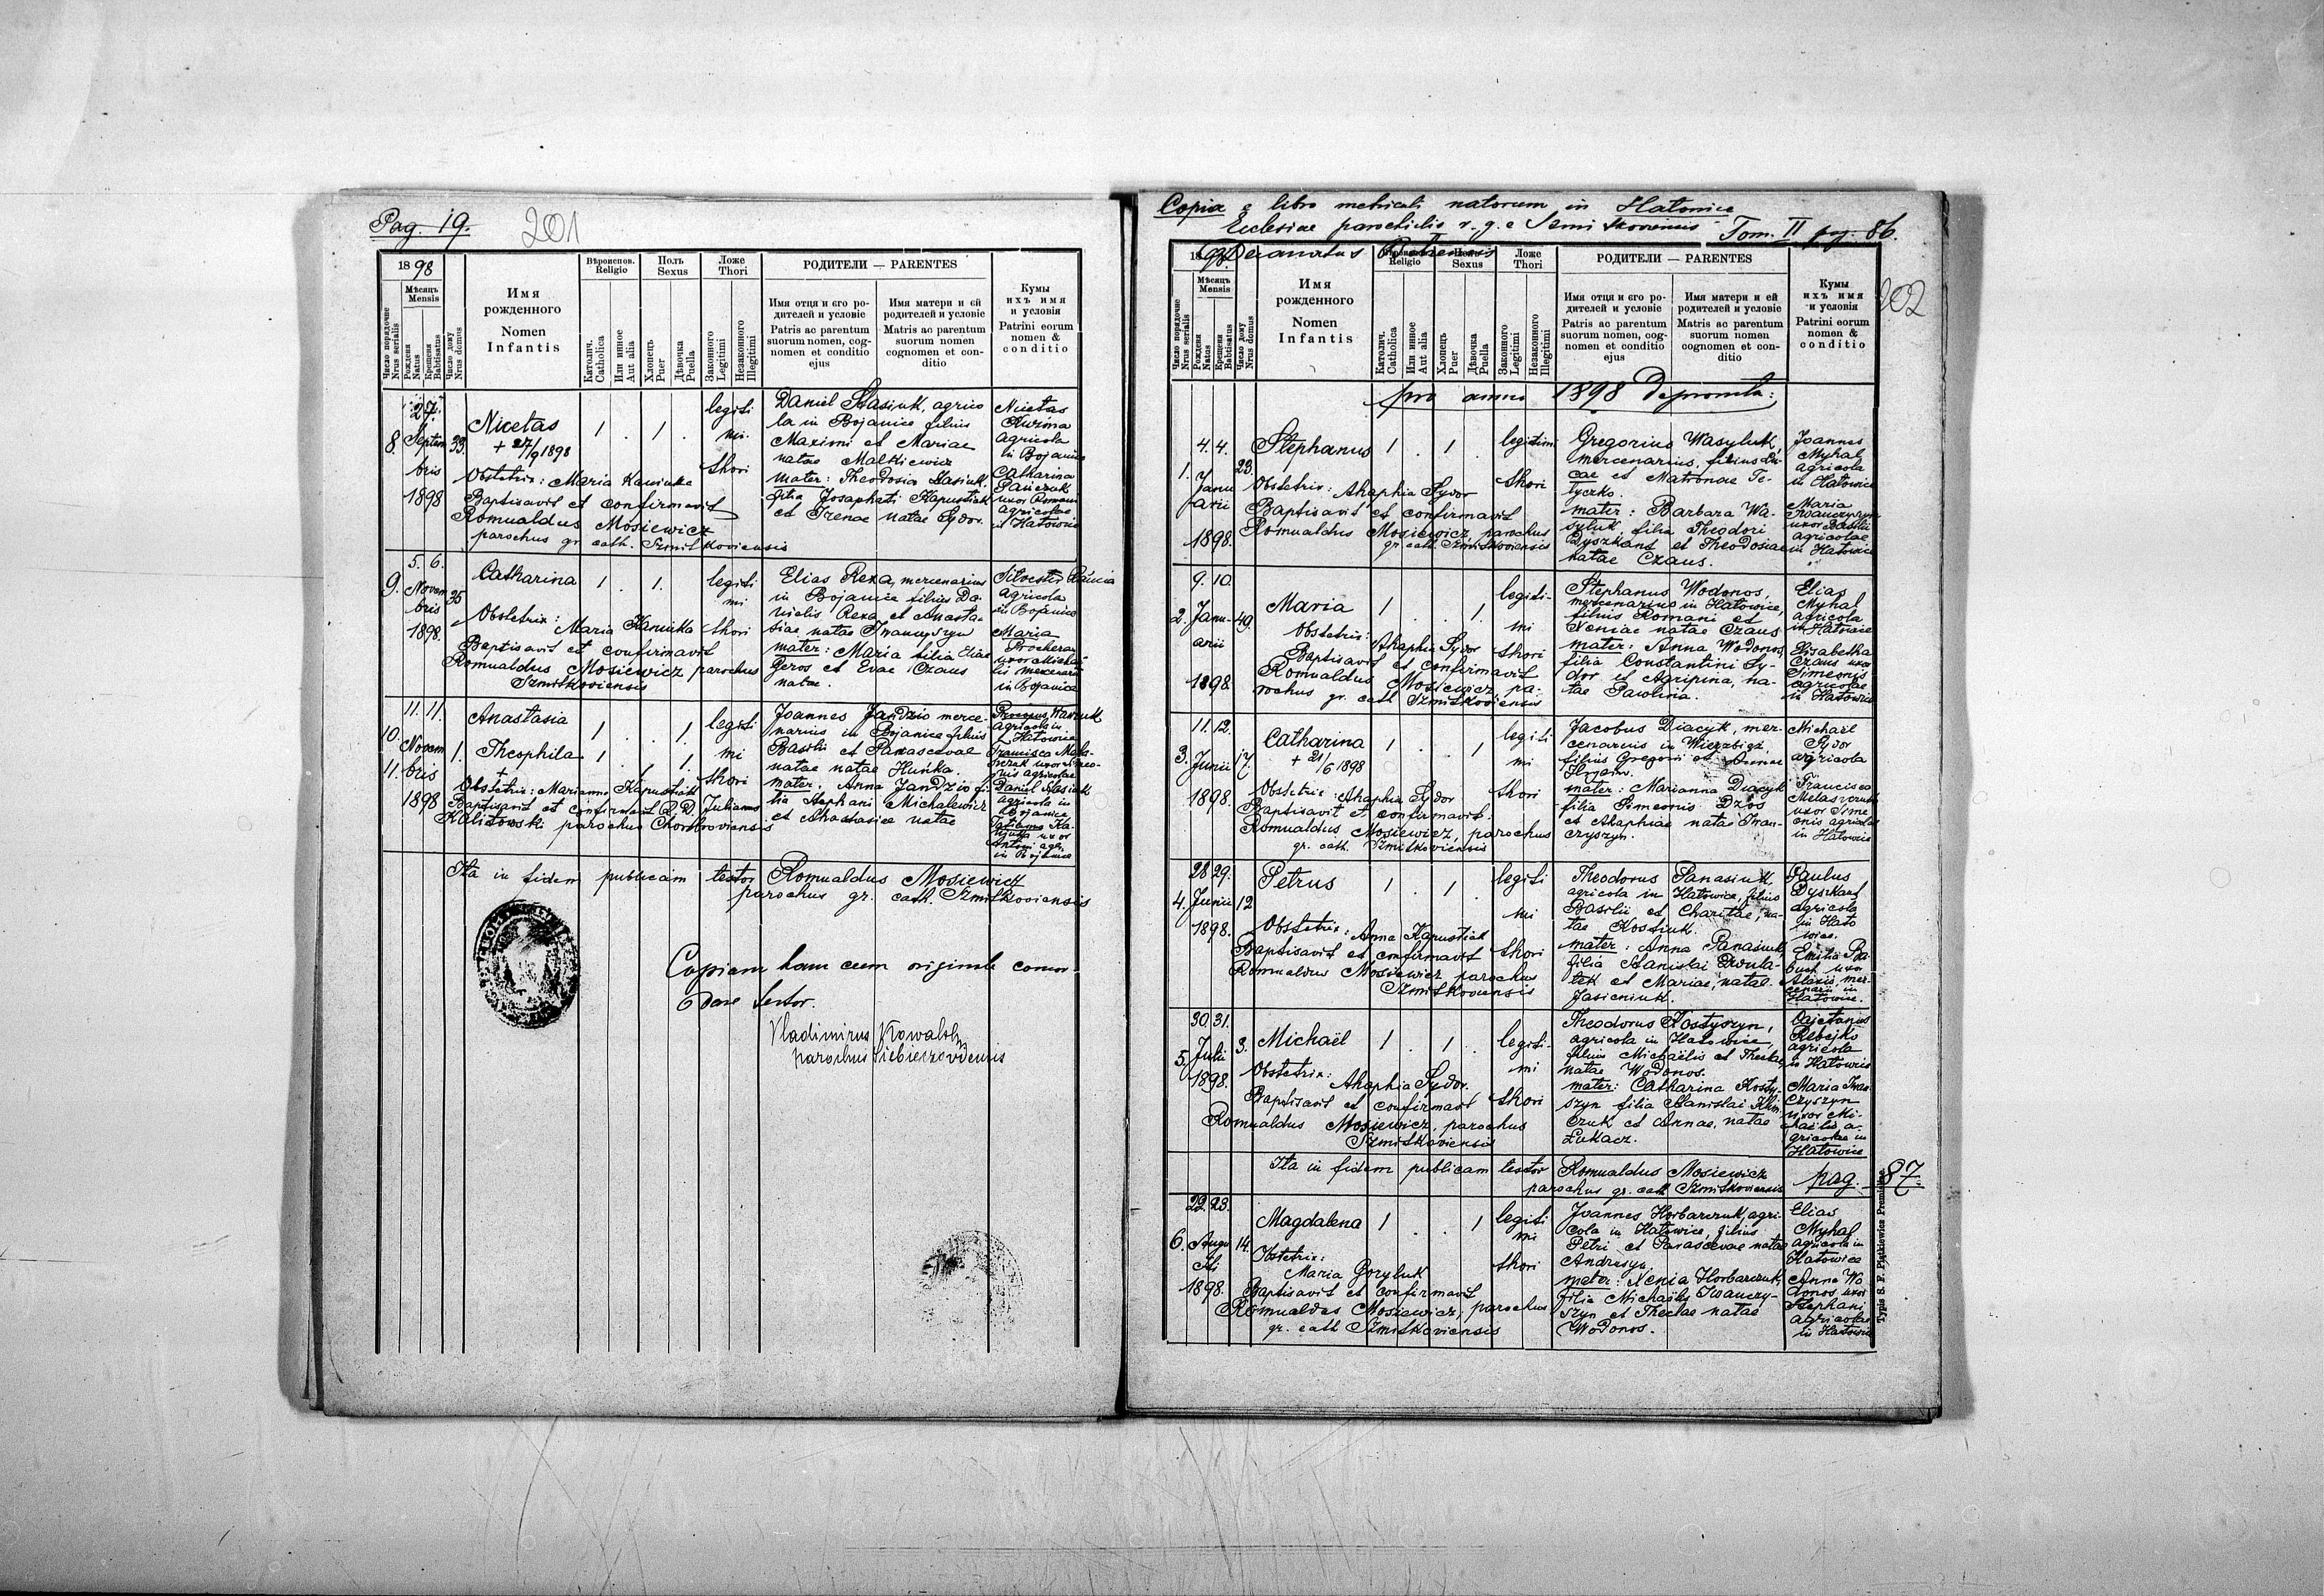 Pag. 19.
201
1898
Вѣроиспов.
Religio
Полъ
Sexus
Ложе
Thori
РОДИТЕЛИ — PARENTES
Мѣсяць
Mensis
Число порядочне
Nrus serialis
Рождєня
Natus
Крещєня
Babtisatus
Число дому
Nrus domus
Имя
рожденного
Nomen
Infantis
Католич.
Catholica
Или инное
Aut alia
Хлопець
Puer
Дѣвочка
Puella
Законного
Legitimi
Незаконного
Illegitimi
Имя отця и єго ро-
дителей и условіє
Patris ac parentum
suorum nomen, cog-
nomen et conditio
ejus
Имя матери и єй
родителей и условіє
Matris ac parentum
suorum nomen
cognomen et con-
ditio
Кумы
ихъ имя
и условія
Patrini eorum
nomen &
conditio
8. Septem
bris
1898
33.
Nicetas
+ 27/9 1898
1 . 1 .
legiti
mi
thori
Obstetrix: Maria Kaminka
Baptisavit et confirmavit
Romualdus Mosiewicz
parochus gr. cath. Szmitkoviensis
Daniel Stasiuk, agrico
la in Bojanice filius
Maximi et Mariae
natae Malkiewicz
mater: Theodosia Stasiuk
filia Josaphati Kapustiak
et Irenae natae Sydor.
Nicetas
Kuzma
agricola
in Bojanice
Catharina
Panczuk
uxor Romani
agricolae
in Hatowice
9.
5. 6.
Novem
bris
1898.
35
Catharina
1 . 1.
legiti
mi
thori
Obstetrix:
Maria Kaminka
Baptisavit et confirmavit
Romualdus Mosiewicz parochus
Szmitkoviensis
Elias Rexa, mercenarius
in Bojanice filius Da-
nielis Rexa et Anasta-
siae natae Iwanczyszyn
mater: Maria filia Eliae
Geros et Evae Czaus
natae.
Silvester
agricola
in Bojanice
Maria
Prochera
uxor Michaë
lis mercenarii
in Bojanice
10.
11.
11. 11.
Novem
bris
1898
1.
Anastasia
Theophila
+
1 . . 1.
1 . . 1.
legiti
mi
thori
Obstetrix: Marianna Kapustiak
Baptisavit et confirmavit R. D. Julianus
Kalitowski parochus Chorobroviensis
Joannes Jandzio merce-
narius in Bojanice filius
Basilii et Parascevae
natae natae Huńka.
mater: Anna Jandzio fi-
lia Stephani Michalewicz
et Anastasiae natae
agricola in
Hatowice
Francisca
Daniel Stasiuk
agricola in
Bojanice
Antoni agri.
in Bojanice
Ita in fidem publicam testor Romualdus Mosiewicz
parochus gr. cath. Szmitkoviensis
Copiam hanc cum originale concor
dare testor.
Vladimirus Kowalsky
parochus Siebieczoviensis
Copia e libro metricali natorum in Hatowice
Ecclesiae parochialis r. g. c Szmitkoviensis Tom. II pag. 86.
1898. Decanatus
202
Вѣроиспов.
Religio
Полъ
Sexus
Ложе
Thori
РОДИТЕЛИ — PARENTES
Мѣсяць
Mensis
Число порядочне
Nrus serialis
Рождєня
Natus
Крещєня
Babtisatus
Число дому
Nrus domus
Имя
рожденного
Nomen
Infantis
Католич.
Catholica
Или инное
Aut alia
Хлопець
Puer
Дѣвочка
Puella
Законного
Legitimi
Незаконного
Illegitimi
Имя отця и єго ро-
дителей и условіє
Patris ac parentum
suorum nomen, cog-
nomen et conditio
ejus
Имя матери и єй
родителей и условіє
Matris ac parentum
suorum nomen
cognomen et con-
ditio
Кумы
ихъ имя
и условія
Patrini eorum
nomen &
conditio
pro anno 1898 Deprompta:
1.
4. 4.
Janu
arii
1898.
23.
Stephanus
1 . 1 .
legitimi
thori
Obstetrix: Ahaphia Sydor
Baptisavit et confirmavit
Romualdus Mosiewicz, parochus
gr. cath. Szmitkoviensis
Gregorius Wasyluk
mercenarius, filius Lu-
cae et Matronae Te-
lyczko.
mater: Barbara Wa-
syluk filia Theodori
Dyszkant et Theodosiae
natae Czaus.
Joannes
Myhal
agricola
in Hatowice
Maria
Iwanczyszyn
uxor Basilii
agricolae
in Hatowice
2.
9. 10.
Janu-
arii
1898.
49.
Maria
1 . . 1
legiti-
mi
thori
Obstetrix:
Ahaphia Sydor
Baptisavit et confirmavit
Romualdus Mosiewicz, pa-
rochus gr. cath Szmitkoviensis
Stephanus Wodonos,
mercenarius in Hatowice,
filius Romani et
Xeniae natae Czaus
mater: Anna Wodonos,
filia Constantini Sy-
dor et Agripina, na-
tae Pawlina.
Elias
Myhal
agricola
in Hatowice
Elisabetha
Czaus uxor
Simeonis
agricolae
in Hatowice
3.
11. 12.
Junii
1898.
17.
Catharina
+ 21/6 1898
1 . . 1
legiti
mi
thori
Obstetrix: Ahaphia Sydor
Baptisavit et confirmavit
Romualdus Mosiewicz, parochus
gr. cath. Szmitkoviensis
Jacobus Diacyk, mer-
cenarius in Wierzbiąż,
filius Gregorii et Irenae
mater: Marianna Diacyk
filia Simeonis Dżos
et Ahaphiae natae Iwan-
czyszyn.
Michaël
Sydor
agricola
Francisca
uxor Sime
onis agricolae
in Hatowice
4.
28 29.
Junii
1898.
12
Petrus
1 . 1 .
legiti
mi
thori
Obstetrix: Anna Kapustiak
Baptisavit et confirmavit
Romualdus Mosiewicz parochus
Szmitkoviensis
Theodorus Panasiuk,
agricola in Hatowice, filius
Basilii et Charitae, na-
tae Kostiuk.
mater: Anna Panasiuk
filia Stanislai
et Mariae, natae
Jasieniuk.
Paulus
Dyszkant
agricola
in Hato
wice.
Emilia Ba-
buch uxor
Alexii, mer-
cenarii in
Hatowice.
5.
30 31.
Julii
1898.
3.
Michaël
1 . 1 .
legiti-
mi
thori
Obstetrix:
Ahaphia Sydor.
Baptisavit et confirmavit
Romualdus Mosiewicz, parochus
Szmitkoviensis
Theodorus Kostyszyn,
agricola in Hatowice,
filius Michaëlis et Theclae,
natae Wodonos.
mater: Catharina Kosty-
szyn filia Stanislai Klim
czuk et Annae, natae
Łukacz.
Cajetanus
Rebejko
agricola
in Hatowice
Maria Iwan
czyszyn
uxor Mi-
chaëlis a-
gricolae in
Hatowice
Ita in fidem publicam testor Romualdus Mosiewicz
parochus gr. cath Szmitkoviensis
pag. 87
6.
22. 23.
Augu
sti
1898.
14.
Magdalena
1 . . 1
legiti
mi
thori
Obstetrix:
Maria Goryluk
Baptisavit et confirmavit
Romualdus Mosiewicz, parochus
gr. cath Szmitkoviensis
Joannes Horbarczuk, agri-
cola in Hatowice, filius
Petri et Parascevae natae
mater: Xenia Horbarczuk
filia Michaëlis Iwanczy-
szyn et Theclae natae
Wodonos.
Elias
Myhal
agricola in
Hatowice
Anna Wo
donos uxor
Stephani
agricolae
in Hatowice
Typis S. F. Piątkiewicz Premisliae